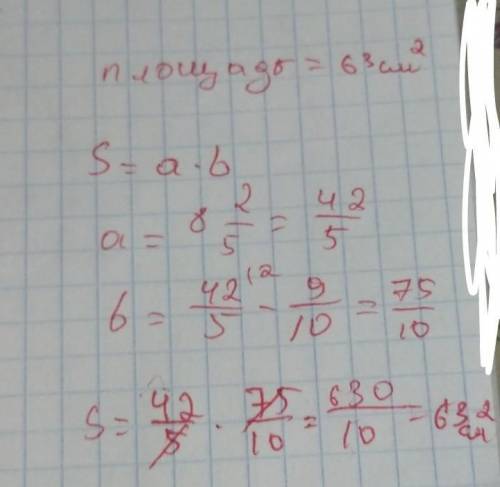 площадь = 63 см²
S = a · b
a = 8 2/5 = 42/5
b = 42/5 ⁽² - 9/10 = 75/10
S = 42/5 · 75/10 = 630/10 = 63 см²